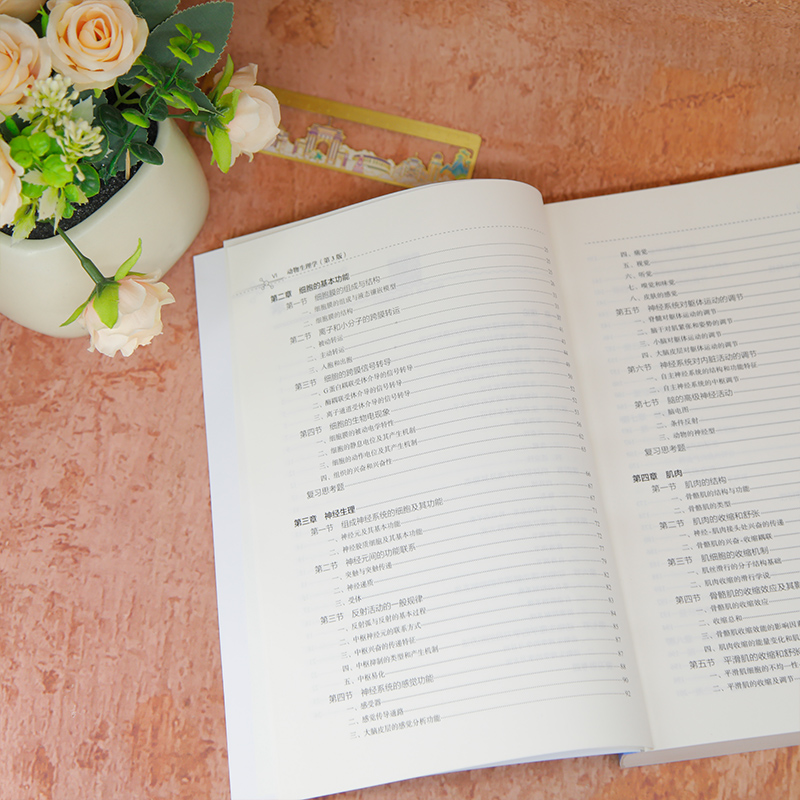 VI 动物生理学(第3版)
第二章 细胞的基本功能
第一节 细胞膜的组成与结构
一、细胞膜的组成与液态镶嵌模型
二、细胞膜的结构
第二节 离子和小分子的跨膜转运
一、被动转运
二、主动转运
三、入胞和出胞
第三节 细胞的跨膜信号转导
一、G蛋白耦联受体介导的信号转导
二、酶耦联受体介导的信号转导
三、离子通道受体介导的信号转导
第四节 细胞的生物电现象
一、细胞膜的被动电学特性
二、细胞的静息电位及其产生机制
三、细胞的动作电位及其产生机制
四、组织的兴奋和兴奋性
复习思考题
第三章 神经生理
第一节 组成神经系统的细胞及其功能
一、神经元及其基本功能
二、神经胶质细胞及其基本功能
第二节 神经元间的功能联系
一、突触与突触传递
二、神经递质
三、受体
第三节 反射活动的一般规律
一、反射弧与反射的基本过程
二、中枢神经元的联系方式
三、中枢兴奋的传递特征
四、中枢抑制的类型和产生机制
五、中枢易化
第四节 神经系统的感觉功能
一、感受器
二、感觉传导通路
三、大脑皮层的感觉分析功能 92
四、痛觉
五、视觉
六、听觉
七、嗅觉和味觉
八、皮肤的感觉
第五节 神经系统对躯体运动的调节
一、脊髓对躯体运动的调节
二、脑干对肌紧张和姿势的调节
三、小脑对躯体运动的调节
四、大脑皮层对躯体运动的调节
第六节 神经系统对内脏活动的调节
一、自主神经系统的结构和功能特征
二、自主神经系统的中枢调节
第七节 脑的高级神经活动
一、脑电图
二、条件反射
三、动物的神经型
复习思考题
第四章 肌肉
第一节 肌肉的结构
一、骨骼肌的结构与功能
二、骨骼肌的类型
第二节 肌肉的收缩和舒张
一、神经-肌肉接头处兴奋的传递
二、骨骼肌的兴奋-收缩耦联
第三节 肌细胞的收缩机制
一、肌丝滑行的分子结构基础
二、肌肉收缩的滑行学说
第四节 骨骼肌的收缩效应及其影
一、骨骼肌的收缩效应
二、收缩总和
三、骨骼肌收缩效能的影响因素
四、肌肉收缩的能量变化和肌
第五节 平滑肌的收缩和舒张
一、平滑肌细胞的不均一性
二、平滑肌的收缩及调节